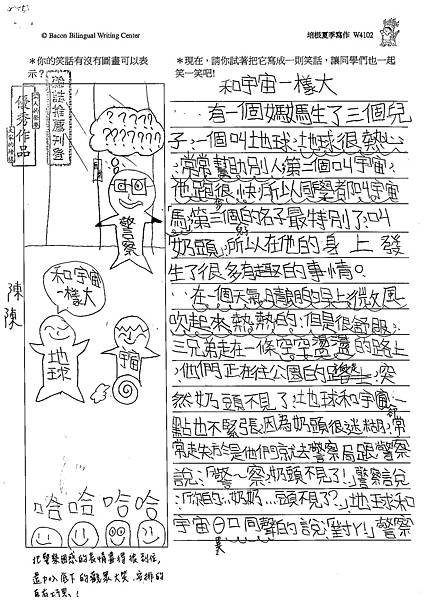 © Bacon Bilingual Writing Center
培根夏季寫作 W4102
*你的笑話有沒有圖畫可以表
示?
*現在,請你試著把它寫成一則笑話,讓同學們也一起
笑一笑吧!
優秀作品
陳
陳
???????
??????
警察
和宇宙
一樣大
地球
宇宙
哈哈哈哈
和宇宙一樣大
有一個媽馬生了三個兒
子,一個叫地球,地球很熱心
,常常幫助別人,第二個叫宇宙,
他跑很快,所以同學都叫宇宙
馬,第三個的名子最特別了,叫
奶頭,所以在他的身上發
生了很多有趣的事情。
在一個天氣晴朗的早上,微風
吹起來熱熱的,但是很舒服,
三兄弟走在一條空空盪盪的路上
,他們正在往公園的路上,突
然奶頭不見了,地球和宇宙一
點也不緊張,因為奶頭很迷糊,常
常走失,於是他們就去警察局跟警察
說:「警~察,奶頭不見了!」警察說
:「你的…奶奶…頭不見了?」地球和
宇宙異口同聲的說:「對ㄚ!」警察